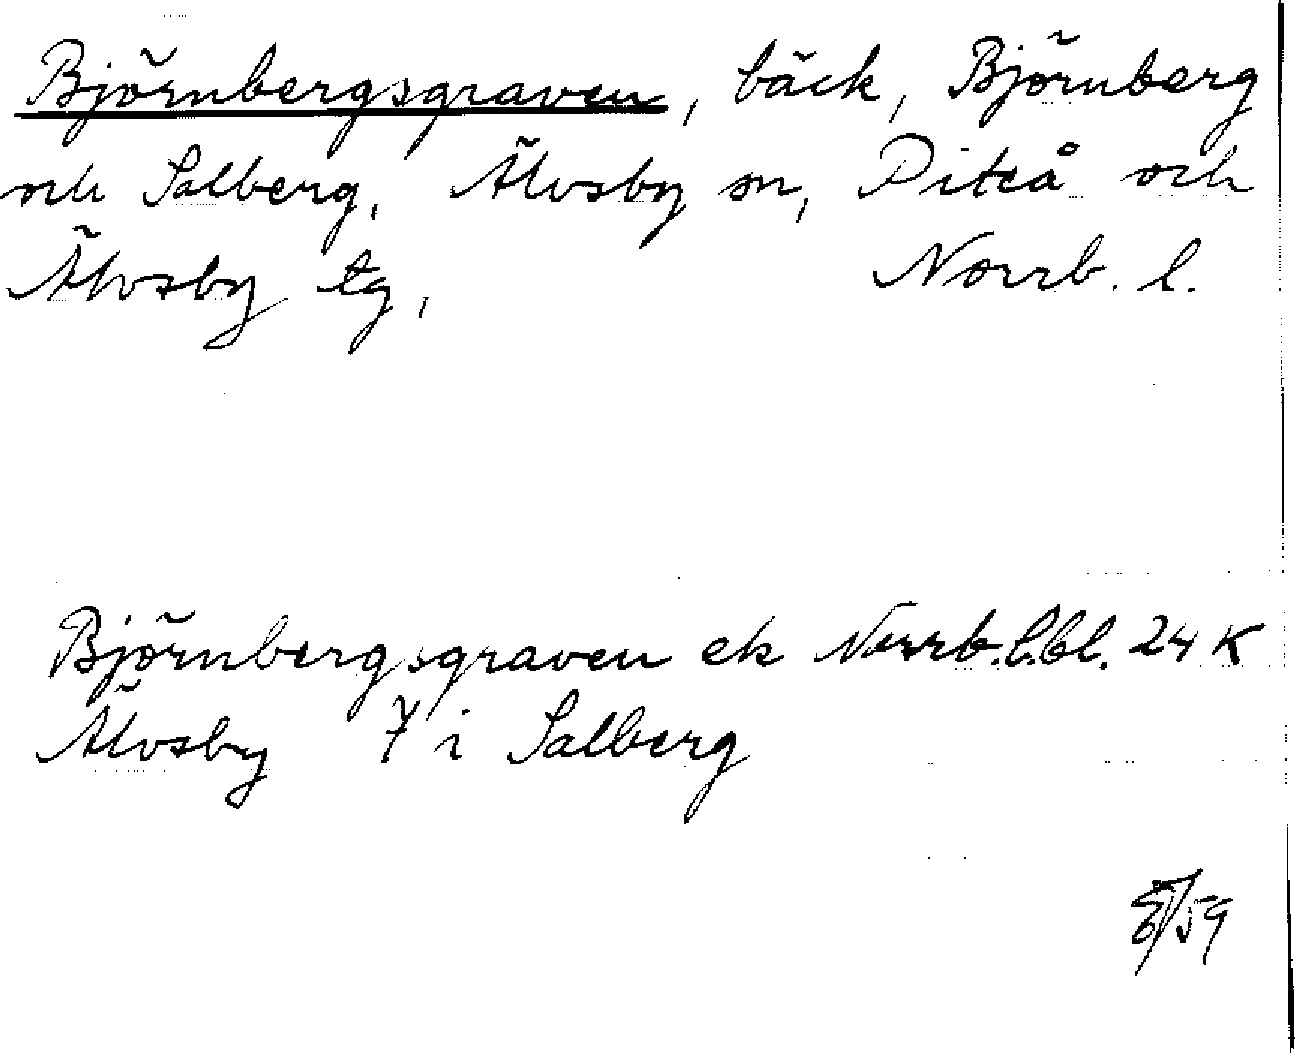 Björnbergsgraven, bäck, Björnberg
och Salberg, Älvsby sn, Piteå och
Älvsby tg, Norrb. l.
Björnbergsgraven ek Norrb.l.bl. 24 K
Älvsby 7 i Salberg